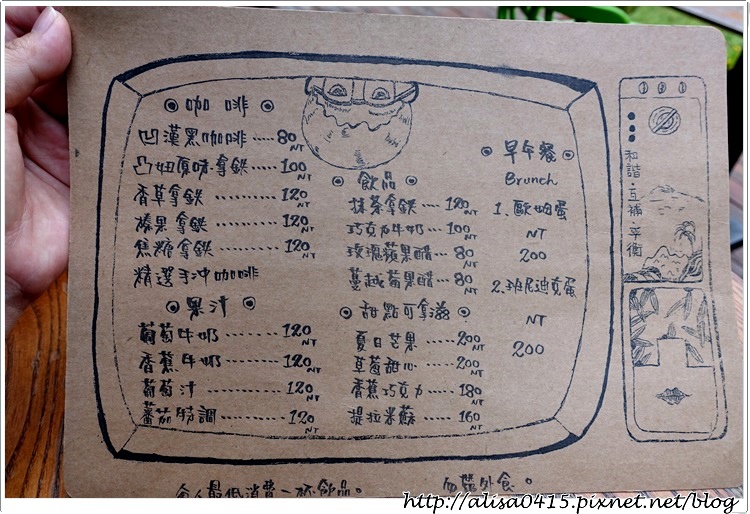 咖啡
凹漢黑咖啡 80 NT
凸妞原味拿鐵 100 NT
香草拿鐵 120 NT
榛果拿鐵 120 NT
焦糖拿鐵 120 NT
精選手沖咖啡
果汁
葡萄牛奶 120 NT
香蕉牛奶 120 NT
葡萄汁 120 NT
蕃茄特調 120 NT
飲品
抹茶拿鐵 120 NT
巧克力牛奶 100 NT
玫瑰蘋果醋 80 NT
蔓越莓果醋 80 NT
甜點可拿滋
夏日芒果 200 NT
草莓甜心 200 NT
香蕉巧克力 180 NT
提拉米蘇 160 NT
早午餐
Brunch
1. 歐姆蛋
NT
200
2. 班尼迪克蛋
NT
200
和諧·互補·平衡
最低消費一杯飲品。
外食。
http://alisa0415.pixnet.net/blog